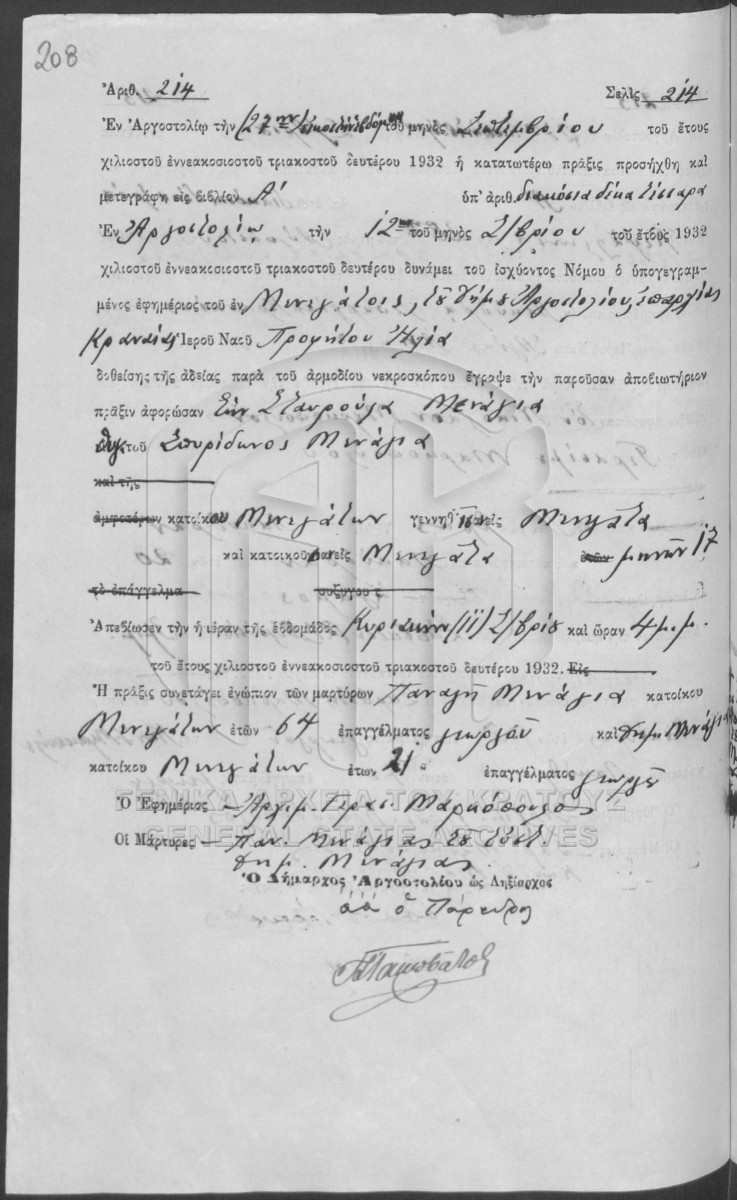 208
Ἀριθ. 214 Σελὶς 214
Ἐν Ἀργοστολίῳ τὴν (27ην) εἰκοστὴν ἑβδόμην τοῦ μηνὸς Σεπτεμβρίου τοῦ ἔτους
χιλιοστοῦ ἐννεακοσιοστοῦ τριακοστοῦ δευτέρου 1932 ἡ κατωτέρω πρᾶξις προσήχθη καὶ
μετεγράφη εἰς βιβλίον Α' ὑπ' ἀριθ. διακόσια δέκα τέσσαρα
Ἐν Ἀργοστολίῳ τὴν 12ην τοῦ μηνὸς 7/βρίου τοῦ ἔτους 1932
χιλιοστοῦ ἐννεακοσιοστοῦ τριακοστοῦ δευτέρου δυνάμει τοῦ ἰσχύοντος Νόμου ὁ ὑπογεγραμ-
μένος ἐφημέριος τοῦ ἐν Μινιγάτοις, τοῦ δήμου Ἀργοστολίου, ἐπαρχίας
Κραναίας Ἱεροῦ Ναοῦ Προφήτου Ἠλία
δοθείσης τῆς ἀδείας παρὰ τοῦ ἁρμοδίου νεκροσκόπου ἔγραψε τὴν παροῦσαν ἀποβιωτήριον
πρᾶξιν ἀφορῶσαν τὴν Σταυρούλα Μενάγια
θυγ. τοῦ Σπυρίδωνος Μενάγια
καὶ τῆς
ἀμφοτέρων κατοίκου Μινιγάτων γεννηθεῖσαν εἰς Μινιγάτα
καὶ κατοικοῦσαν εἰς Μινιγάτα ἐτῶν μηνῶν 17
τὸ ἐπάγγελμα συζύγου τ
Ἀπεβίωσεν τὴν ἡμέραν τῆς ἑβδομάδος Κυριακὴν (11) 7/βρίου καὶ ὥραν 4 μ.μ.
τοῦ ἔτους χιλιοστοῦ ἐννεακοσιοστοῦ τριακοστοῦ δευτέρου 1932. Εἰς
Ἡ πρᾶξις συνετάγει ἐνώπιον τῶν μαρτύρων Παναγῆ Μενάγια κατοίκου
Μινιγάτων ἐτῶν 64 ἐπαγγέλματος γεωργοῦ καὶ Δημ. Μενάγια
κατοίκου Μινιγάτων ἐτων 21 ἐπαγγέλματος γεωργοῦ
Ὁ Ἐφημέριος – Ἀρχιμ. Γερασ. Μαρκόπουλος
Οἱ Μάρτυρες – Παν. Μενάγιας
Δημ. Μενάγιας
Ὁ Δήμαρχος Ἀργοστολίου ὡς Ληξίαρχος
ὁ Πάρεδρος
ΓΕΝΙΚΑ ΑΡΧΕΙΑ ΤΟΥ ΚΡΑΤΟΥΣ
GENERAL STATE ARCHIVES